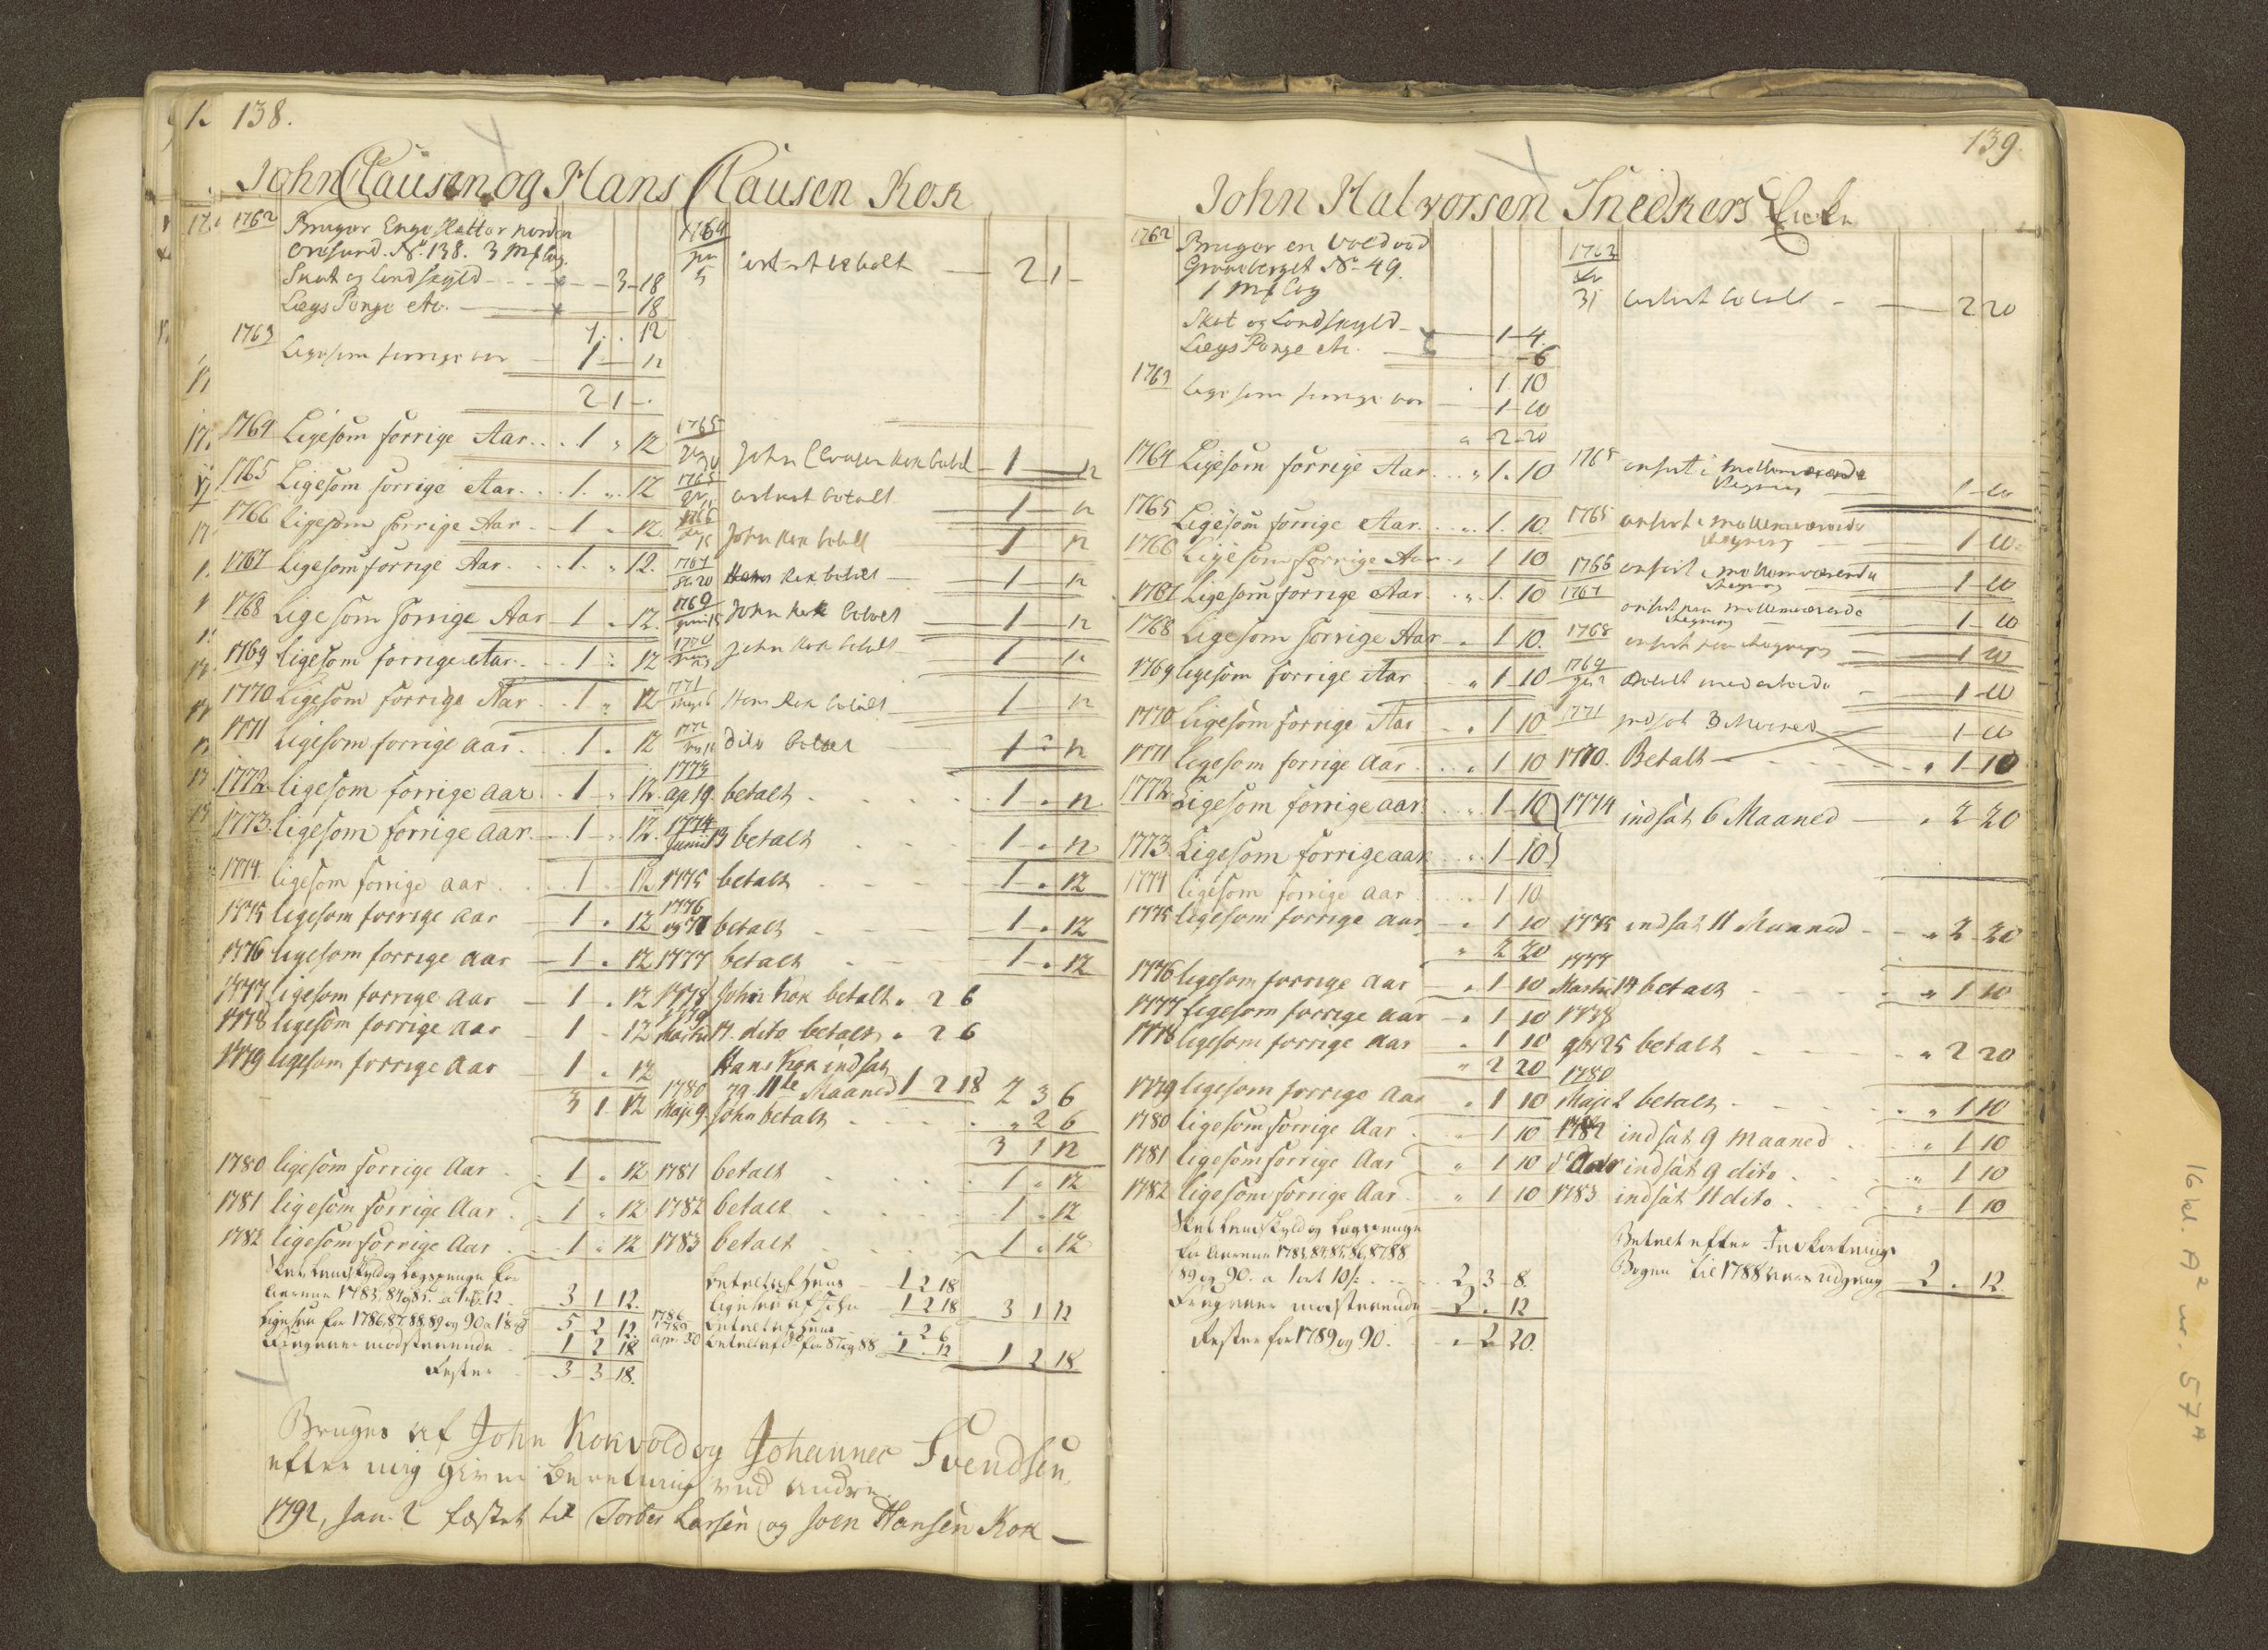 138.
John Clausen og Hans Clausen Kok
1762 Bruger Enge Sletter norden
Oresund. No. 138. 3 Mk Leg.
Skat og Landskyld - - - 3-18
Legs Penge etc. - 18
1. . 12
1763 Ligesom forrige aar - 1 - 12
2 1 -
1764 5 betalt - 2 1 -
1764 Ligesom forrige Aar. . . 1 " 12
1765 John Clausen Kok betal - 1 - 12
1765 Ligesom forrige Aar. . . 1. " 12
1765 betalt - 1 - 12
1766 Ligesom forrige Aar - 1 " 12.
1766 John Kok betalt 1 12
1767 Ligesom forrige Aar. . . 1. " 12.
1767 20 Hans Kok betalt - 1 - 12
1768 Ligesom forrige Aar - 1 " 12.
1769 John Kok betalt - 1 - 12
1769 Ligesom forrige Aar. . 1 " 12
1770 John Kok betalt - 1 - 12
1770 Ligesom forrige Aar . 1 " 12
1771 Hans Kok betalt - 1 - 12
1771 Ligesom forrige aar. . 1. " 12
1772 Dito betalt 1 " 12
1772 ligesom forrige aar . 1 " 12.
1773 ap 19. betalt . . . . 1 " 12.
1773. ligesom forrige aar. - 1 - " 12.
1774 Junii 13 betalt . . . 1 - " 12.
1774. ligesom forrige aar . . 1 . 12
1775 betalt . . . - 1 - " 12
1775 ligesom forrige aar - 1 " 12
1776 betalt . . . - 1 - " 12
1776 ligesom forrige aar - 1 " 12
1777 betalt - - 1 - " 12
1777 ligesom forrige aar - 1 " 12
1778 John Kok betalt " 2 6
1778 ligesom forrige aar - 1 - 12
1779 Martii 17. dito betalt " 2 6
1779 ligesom forrige aar - 1 " 12
3 1 12
Hans Kok indsat
79. 11te Maaned 1 2 18 2 3 6
1780 Maji 9. John betalt . . . " 2 6
3 1 12
1780 ligesom forrige Aar . . 1 " 12
1781 betalt . . . 1 " 12
1781 ligesom forrige Aar . . 1 " 12
1782 betalt . . . 1 " 12
1782 ligesom forrige Aar . . 1 " 12
1783 betalt . . . 1 " 12
Skat, Landskyld og Legspenge for
Aarene 1783, 84 og 85. a 1 " 12 3 1 12.
Ligesaa for 1786, 87, 88, 89 og 90 a 18 5 2 12.
Fragaaer modstaaende 1 2 18
Rester - 3 - 3 - 18.
betalt af Hans - 1 2 18
ligesaa af John - 1 2 18 3 1 12
1786 betalt af Hans " 2 6
1789 apr. 30 betalt af do for 87 og 88 1 . 12 1 2 18
Bruges af John Kokvold og Johannes Svendsen,
efter mig given Beretning ved andre.
1792, Jan. 2 fæstet til Torber Larsen og Joen Hansen Kok -
139.
John Halvorsen Snedkers Enke
1762 Bruger en Voldvod
Graaberget No. 49.
1 Mk Leg
Skat og Landskyld - 1 - 4.
Legs Penge etc. - 6
. 1. 10
1763 ligesom forrige aar - 1 - 10
" 2 - 20
1763 31 betalt - 2 20
1764 Ligesom forrige Aar. . " 1. 10
1765 anført i mellemværende
Regning 1 - 10
1765 Ligesom forrige Aar. . . " 1. 10.
1765 anført i mellemværende
Regning 1 - 10.
1766 Ligesom forrige Aar. " 1 10
1766 anført i mellemværende
Regning 1 - 10
1767 Ligesom forrige Aar. . " 1. 10
1767 anført paa mellemværende
Regning 1 - 10
1768 Ligesom forrige Aar " 1 10.
1768 anført paa Regning 1 10
1769 ligesom forrige Aar " 1 10
1769 Betalt med arbeide - 1 - 10
1770 Ligesom forrige Aar - " 1 10
1771 indsat 3 Maaned 1 - 10
1771 ligesom forrige Aar . . " 1 10
1770. Betalt - - - " 1 - 10
1772. Ligesom forrige aar . . " 1 - 10
1774 indsat 6 Maaned - " 2 - 20
1773. Ligesom forrige aar . " 1 - 10
1774 ligesom forrige aar . . . 1 10
1775 ligesom forrige aar - " 1 10
" 2 20
1775 indsat 11 Maaned - - " 2 - 20
1776 ligesom forrige Aar - " 1 10
1777 Martii 14 betalt - - - " 1 10
1777 ligesom forrige aar - " 1 10
1778 ligesom forrige aar " 1 10
" 2 20
1778 9br 25 betalt - - - " 2 20
1779 ligesom forrige Aar " 1 10
1780 Maji 2 betalt - - - " 1 10
1780 ligesom forrige Aar . " 1 10
1782 indsat 9 Maaned . . " 1 10
1781 ligesom forrige Aar " 1 10
indsat 9 dito . . . " 1 10
1782 ligesom forrige Aar . " 1 10
1783 indsat 11 dito . . . " 1 10
Skat Landskyld og Legspenge
for Aarene 1783, 84, 85, 86, 87, 88
89 og 90. a 1 ort 10 s . . 2 3 - 8.
Fragaaer modstaaende - 2 . 12
Rester for 1789 og 90. . " 2 20.
Betalt efter Indkortnings
Bogen til 1788 Aars udgang - 2 . 12.
16 kl. A² nr. 57 A